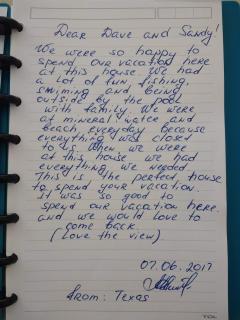 Dear Dave and Sandy!
We were so happy to
spend our vacation here
at this house. We had
a lot of fun, fishing,
swiming and being
outside by the pool
with family. We were
at mineral water and
beach everyday because
everything was closer
to us. When we were
at this house we had
everything we needed.
This is the perfect house
to spend your vacation.
It was so good to
spend our vacation here
and we would love to
come back.
(Love the view)
07.06.2017
From: Texas